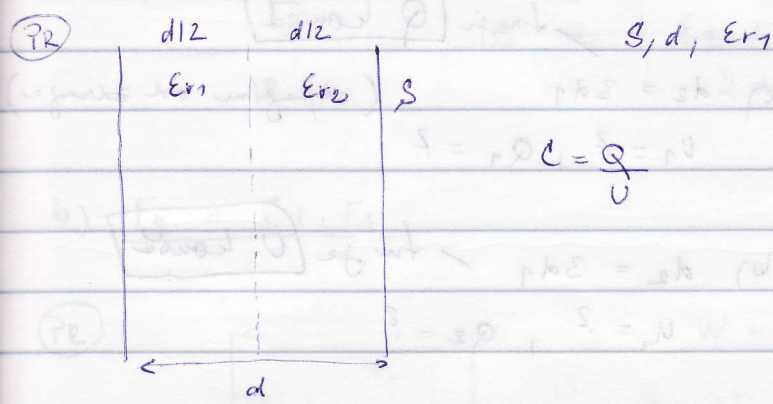 PR d/2 d/2 S, d, εr1
εr1 εr2 S
C = Q/U
d